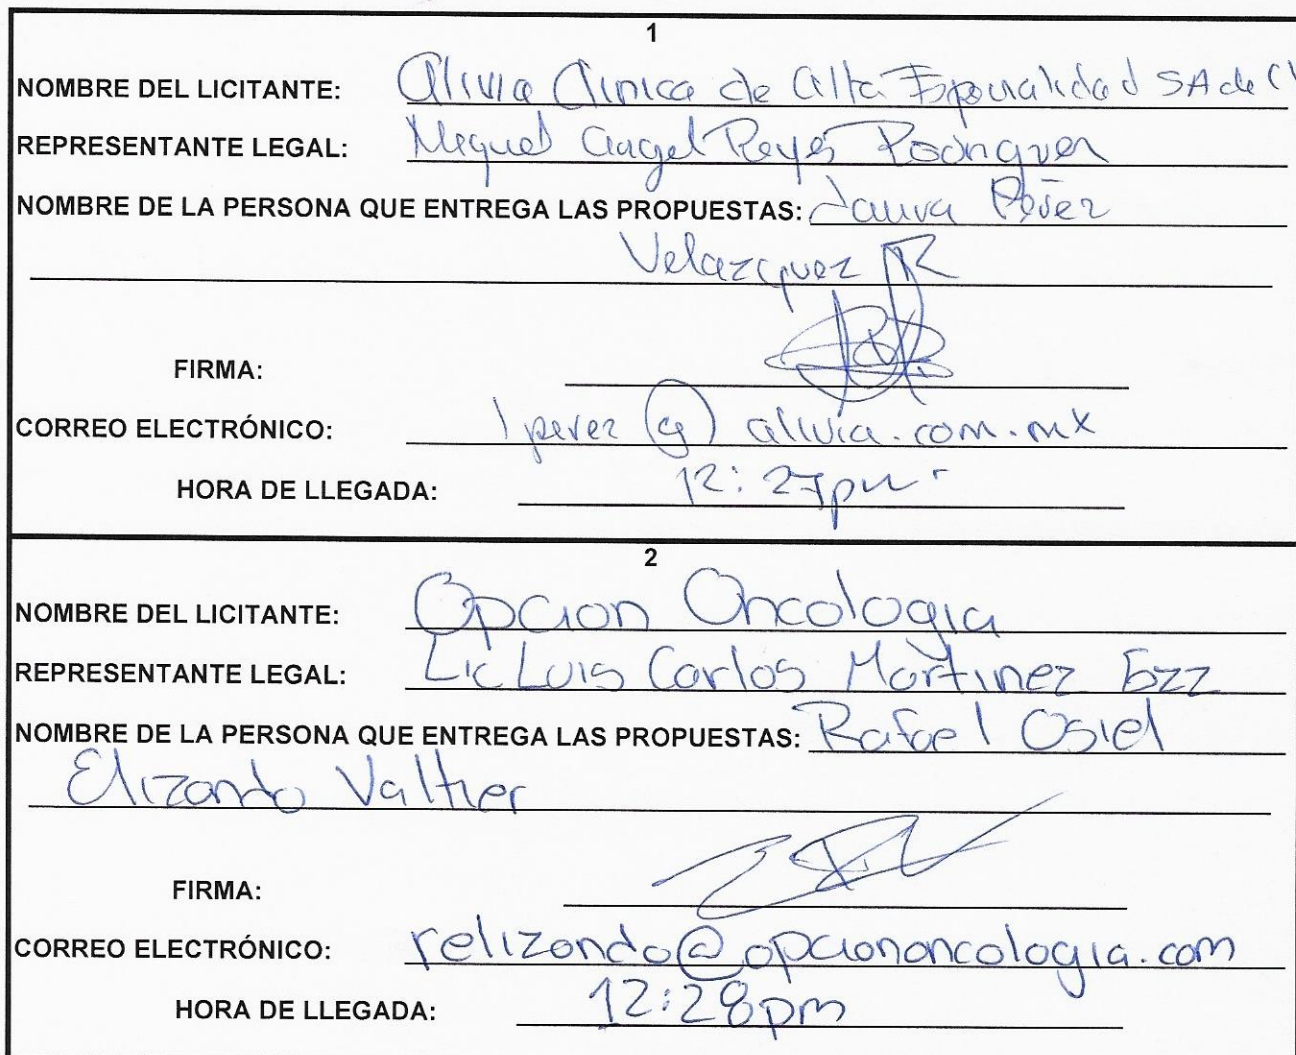 1
NOMBRE DEL LICITANTE: Alivia Clinica de Alta Especialidad SA de CV
REPRESENTANTE LEGAL: Miguel Angel Reyes Rodriguez
NOMBRE DE LA PERSONA QUE ENTREGA LAS PROPUESTAS: Laura Pérez
Velazquez
FIRMA:
CORREO ELECTRÓNICO: lperez@alivia.com.mx
HORA DE LLEGADA: 12:27pm
2
NOMBRE DEL LICITANTE: Opcion Oncologia
REPRESENTANTE LEGAL: Lic Luis Carlos Martinez
NOMBRE DE LA PERSONA QUE ENTREGA LAS PROPUESTAS: Rafael Osiel
Elizondo Valtier
FIRMA:
CORREO ELECTRÓNICO: relizondo@opciononcologia.com
HORA DE LLEGADA: 12:28pm